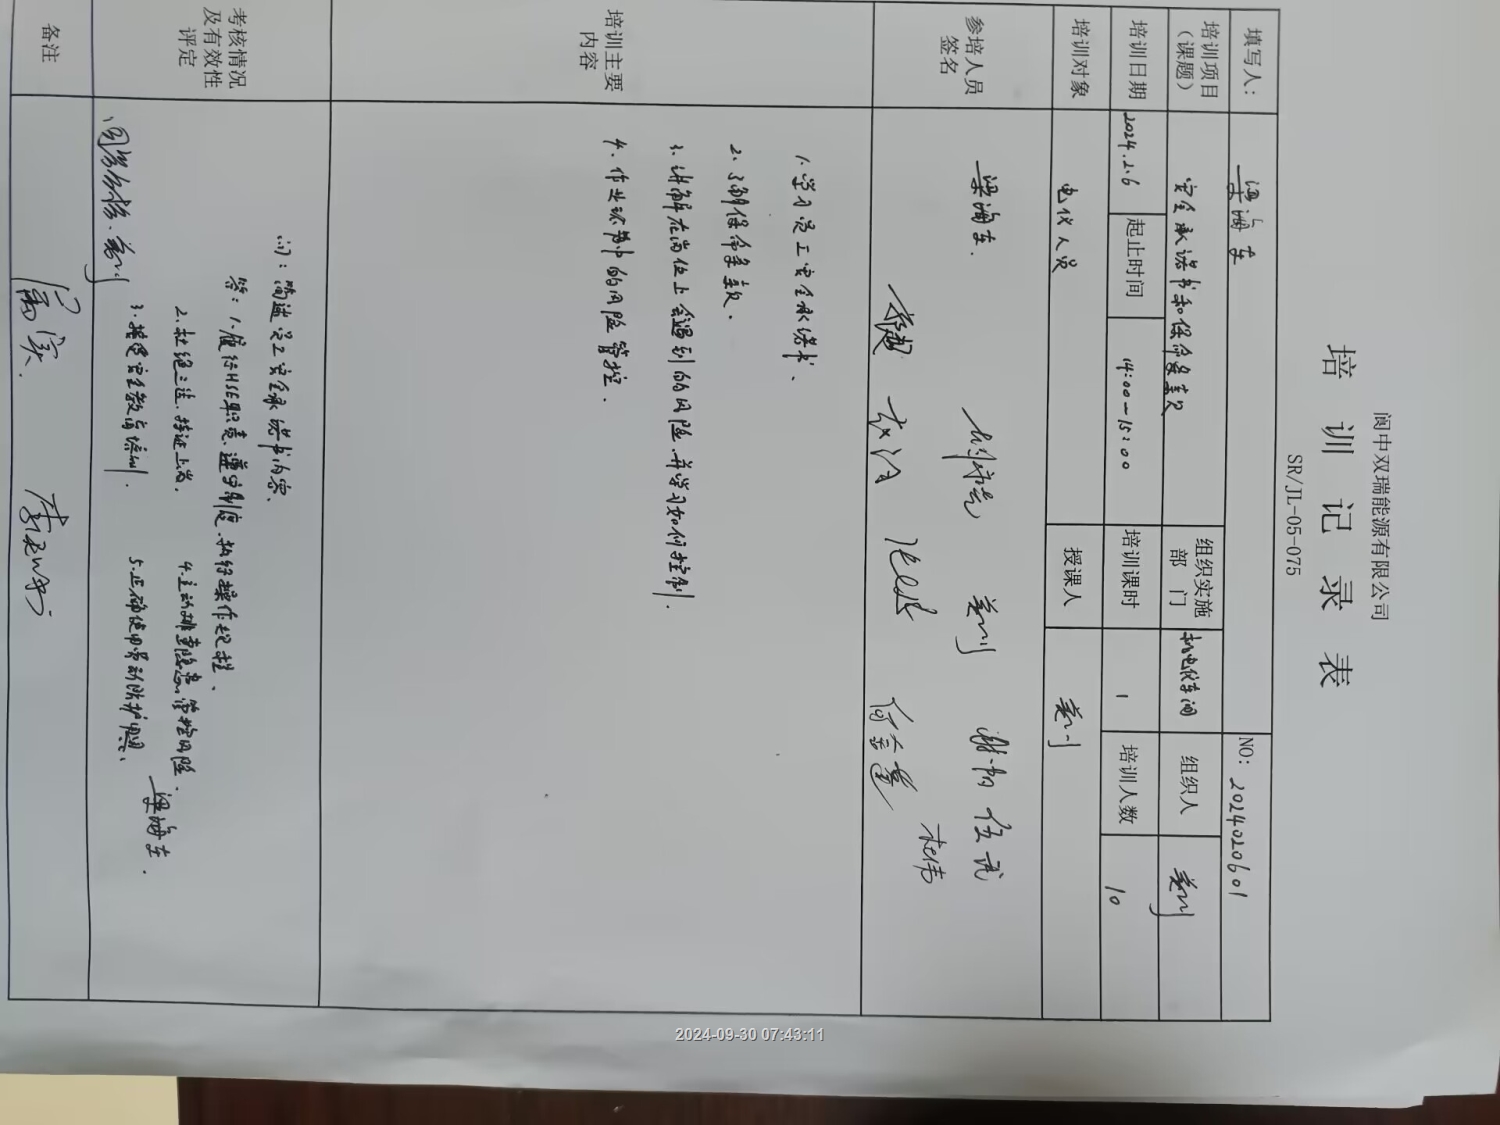 阆中双瑞能源有限公司
培训记录表
SR/JL-05-075
填写人： 梁海东 NO: 2024020601
培训项目（课题） 安全承诺书和保命条款 组织实施部门 机电仪车间 组织人 姜川
培训日期 2024.2.6 起止时间 14:00-15:00 培训课时 1 培训人数 10
培训对象 电仪人员 授课人 姜川
参培人员签名 梁海东. 姜川 伍武
杜伟
培训主要内容
1.学习员工安全承诺书、
2.了解保命条款.
3.讲解在岗位上会遇到的风险.并学习如何控制.
4.作业环节中的风险管控.
考核情况及有效性评定
问：简述员工安全承诺书内容.
答：1.履行HSE职责.遵守制度.执行操作规程.
2.杜绝三违.持证上岗. 4.主动排查隐患.管控风险.
3.接受安全教育培训. 5.正确使用劳动防护用品.
梁海东.
姜川
备注
2024-09-30 07:43:11